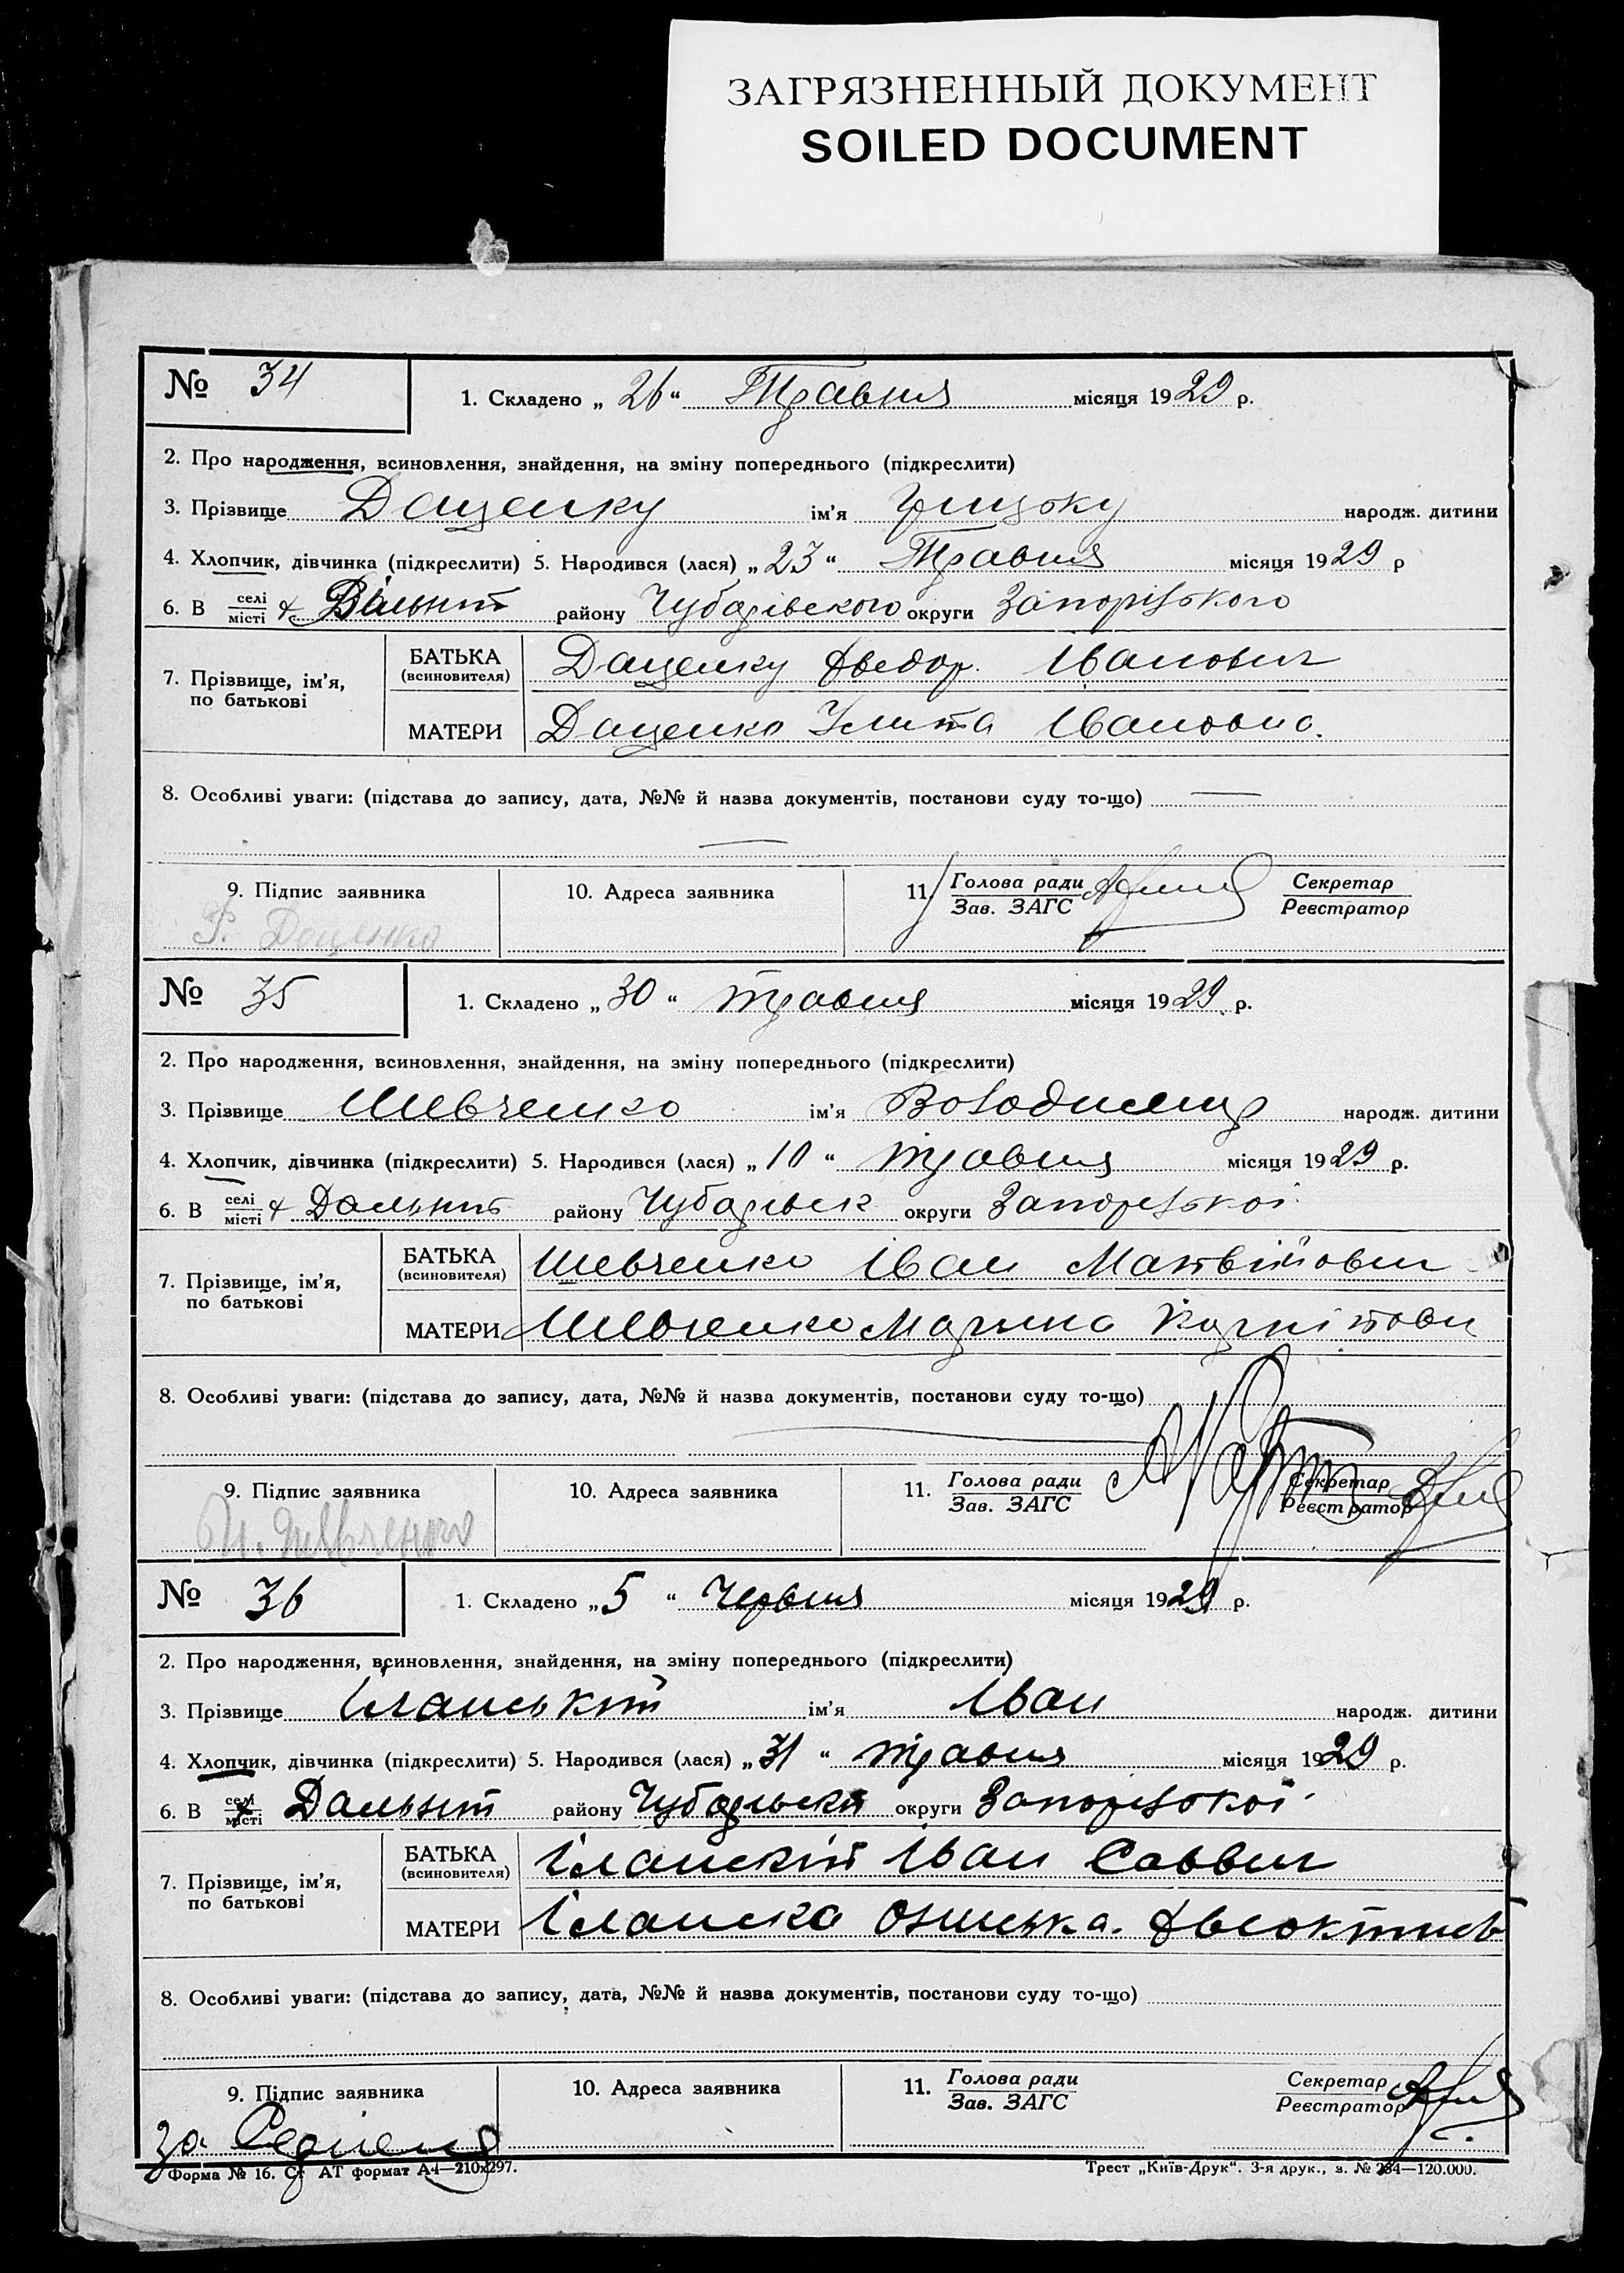 ЗАГРЯЗНЕННЫЙ ДОКУМЕНТ
SOILED DOCUMENT
№ 34
1. Складено „ 26 “ Травня місяця 1929 р.
2. Про народження, всиновлення, знайдення, на зміну попереднього (підкреслити)
3. Прізвище Даценку ім’я Грицьку народж. дитини
4. Хлопчик, дівчинка (підкреслити) 5. Народився (лася) „ 23 “ Травня місяця 1929 р
6. В селі/місті х. району Чубарівского округи Запоріжского
7. Прізвище, ім’я, по батькові
БАТЬКА (всиновителя) Даценку Федор. Іванович
МАТЕРИ Даценко Улита Івановна.
8. Особливі уваги: (підстава до запису, дата, №№ й назва документів, постанови суду то-що) —
—
9. Підпис заявника 10. Адреса заявника 11. Голова ради/Зав. ЗАГС Секретар/Реєстратор
Ф. Даценко
№ 35
1. Складено „ 30 “ травня місяця 1929 р.
2. Про народження, всиновлення, знайдення, на зміну попереднього (підкреслити)
3. Прізвище Шевченко ім’я Володимир народж. дитини
4. Хлопчик, дівчинка (підкреслити) 5. Народився (лася) „ 10 “ травня місяця 1929 р.
6. В селі/місті х. району Чубарівськ округи Запоріжської
7. Прізвище, ім’я, по батькові
БАТЬКА (всиновителя) Шевченко Іван Матвійович
МАТЕРИ Шевченко Марина
8. Особливі уваги: (підстава до запису, дата, №№ й назва документів, постанови суду то-що)
9. Підпис заявника 10. Адреса заявника 11. Голова ради/Зав. ЗАГС Секретар/Реєстратор
И. Шевченко
№ 36
1. Складено „ 5 “ Червня місяця 1929 р.
2. Про народження, всиновлення, знайдення, на зміну попереднього (підкреслити)
3. Прізвище Іланський ім’я Іван народж. дитини
4. Хлопчик, дівчинка (підкреслити) 5. Народився (лася) „ 31 “ травня місяця 1929 р.
6. В селі/місті х району округи Запоріжської
7. Прізвище, ім’я, по батькові
БАТЬКА (всиновителя) Іланский Іван Саввич
МАТЕРИ Іланска
8. Особливі уваги: (підстава до запису, дата, №№ й назва документів, постанови суду то-що)
9. Підпис заявника 10. Адреса заявника 11. Голова ради/Зав. ЗАГС Секретар/Реєстратор
за
Форма № 16. Ст АТ формат А4—210х297. Трест „Київ-Друк“. 3-я друк., з. № 284—120.000.